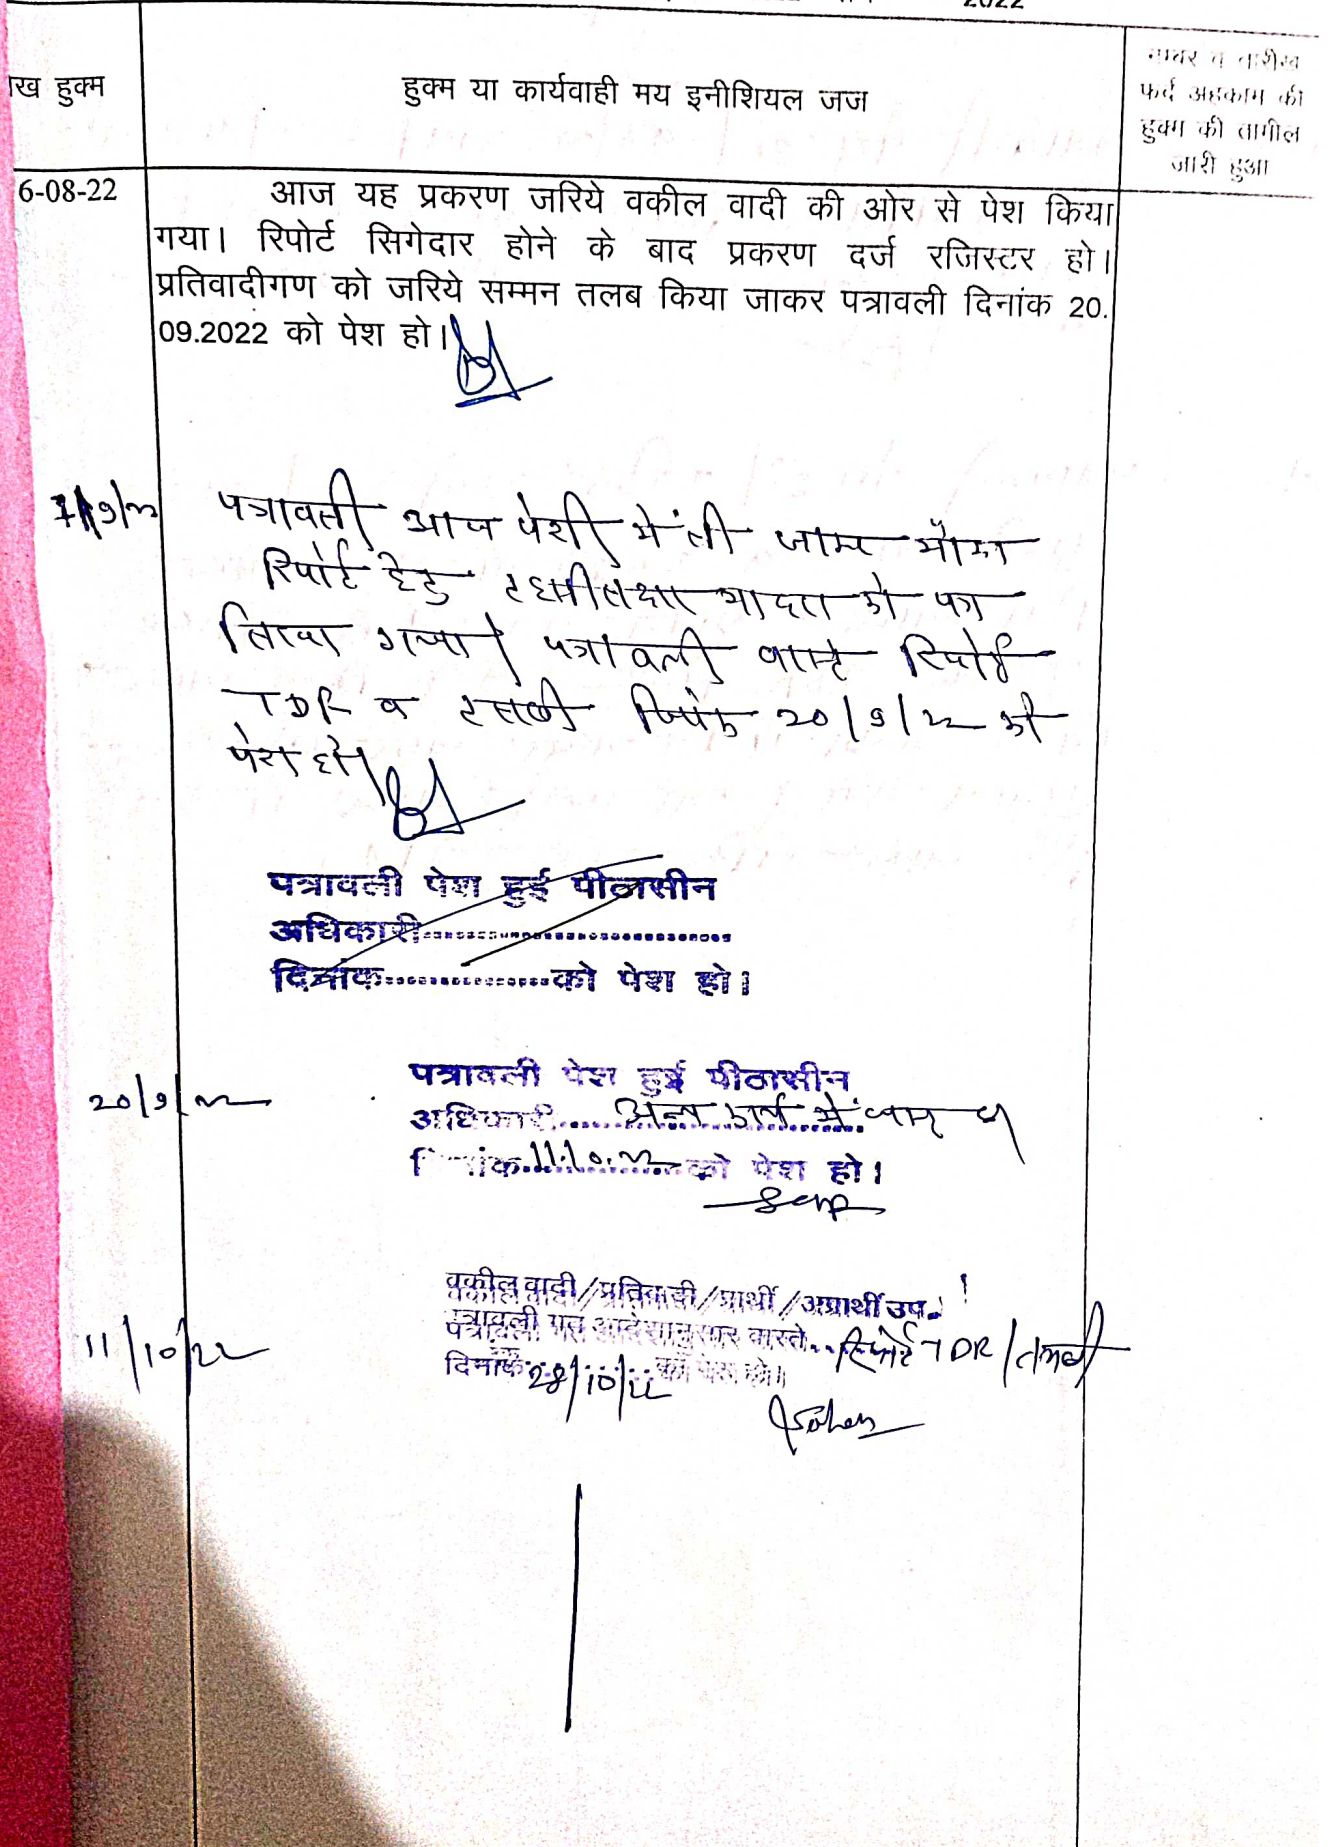 2022
ख हुक्म
हुक्म या कार्यवाही मय इनीशियल जज
नम्बर व तारीख
फर्द अहकाम की
हुक्म की तामील
जारी हुआ
6-08-22
आज यह प्रकरण जरिये वकील वादी की ओर से पेश किया
गया। रिपोर्ट सिगेदार होने के बाद प्रकरण दर्ज रजिस्टर हो।
प्रतिवादीगण को जरिये सम्मन तलब किया जाकर पत्रावली दिनांक 20.
09.2022 को पेश हो।
पत्रावली आज पेशी में ली जाकर मौका
रिपोर्ट हेतु को पत्र
लिखा गया। पत्रावली वास्ते रिपोर्ट
TDR व 20/9/22 को
पेश हो।
पत्रावली पेश हुई पीठासीन
अधिकारी..............................
दिनांक................को पेश हो।
20/9/22
पत्रावली पेश हुई पीठासीन
अधिकारी.....अन्य कार्य में
दिनांक.11.10.22 को पेश हो।
11/10/22
वकील वादी/प्रतिवादी/प्रार्थी/अप्रार्थी उप.
पत्रावली गत आदेशानुसार वास्ते...रिपोर्ट TDR/तलबी
दिनांक 28/10/22 को पेश हो।